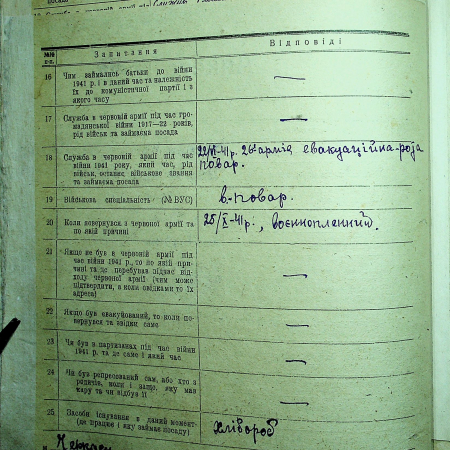 №№ п-п.
Запитання
Відповіді
16
Чим займались батьки до війни
1941 р. і в даний час та належність
їх до комуністичної партії і з
якого часу
—
17
Служба в червоній армії під час гро-
мадянської війни 1917—22 років,
рід військ та займаєма посада
—
18
Служба в червоній армії під час
війни 1941 року, який час, рід
військ, останнє військове звання
та займаєма посада
22/VI-41 р. 26 армія евакуаційна-рота
повар.
19
Військова спеціальність (№ ВУС)
в.-повар.
20
Коли повернувся з червоної армії та
по якій причині
25/X-41 р., воєннопленний.
21
Якщо не був в червоній армії під
час війни 1941 р., то по якій при-
чині та де перебував підчас від-
ходу червоної армії (чим може
підтвердити, а коли свідками то їх
адреса)
—
22
Якщо був евакуйований, то коли по-
вернувся та звідки саме
—
23
Чи був в партизанах під час війни
1941 р. та де саме і який час
—
24
Чи був репресований сам, або хто з
родичів, коли і защо, яку мав
кару та чи відбув її
—
25
Засоби існування в даний момент-
(де працює і яку займає посаду)
хлібороб